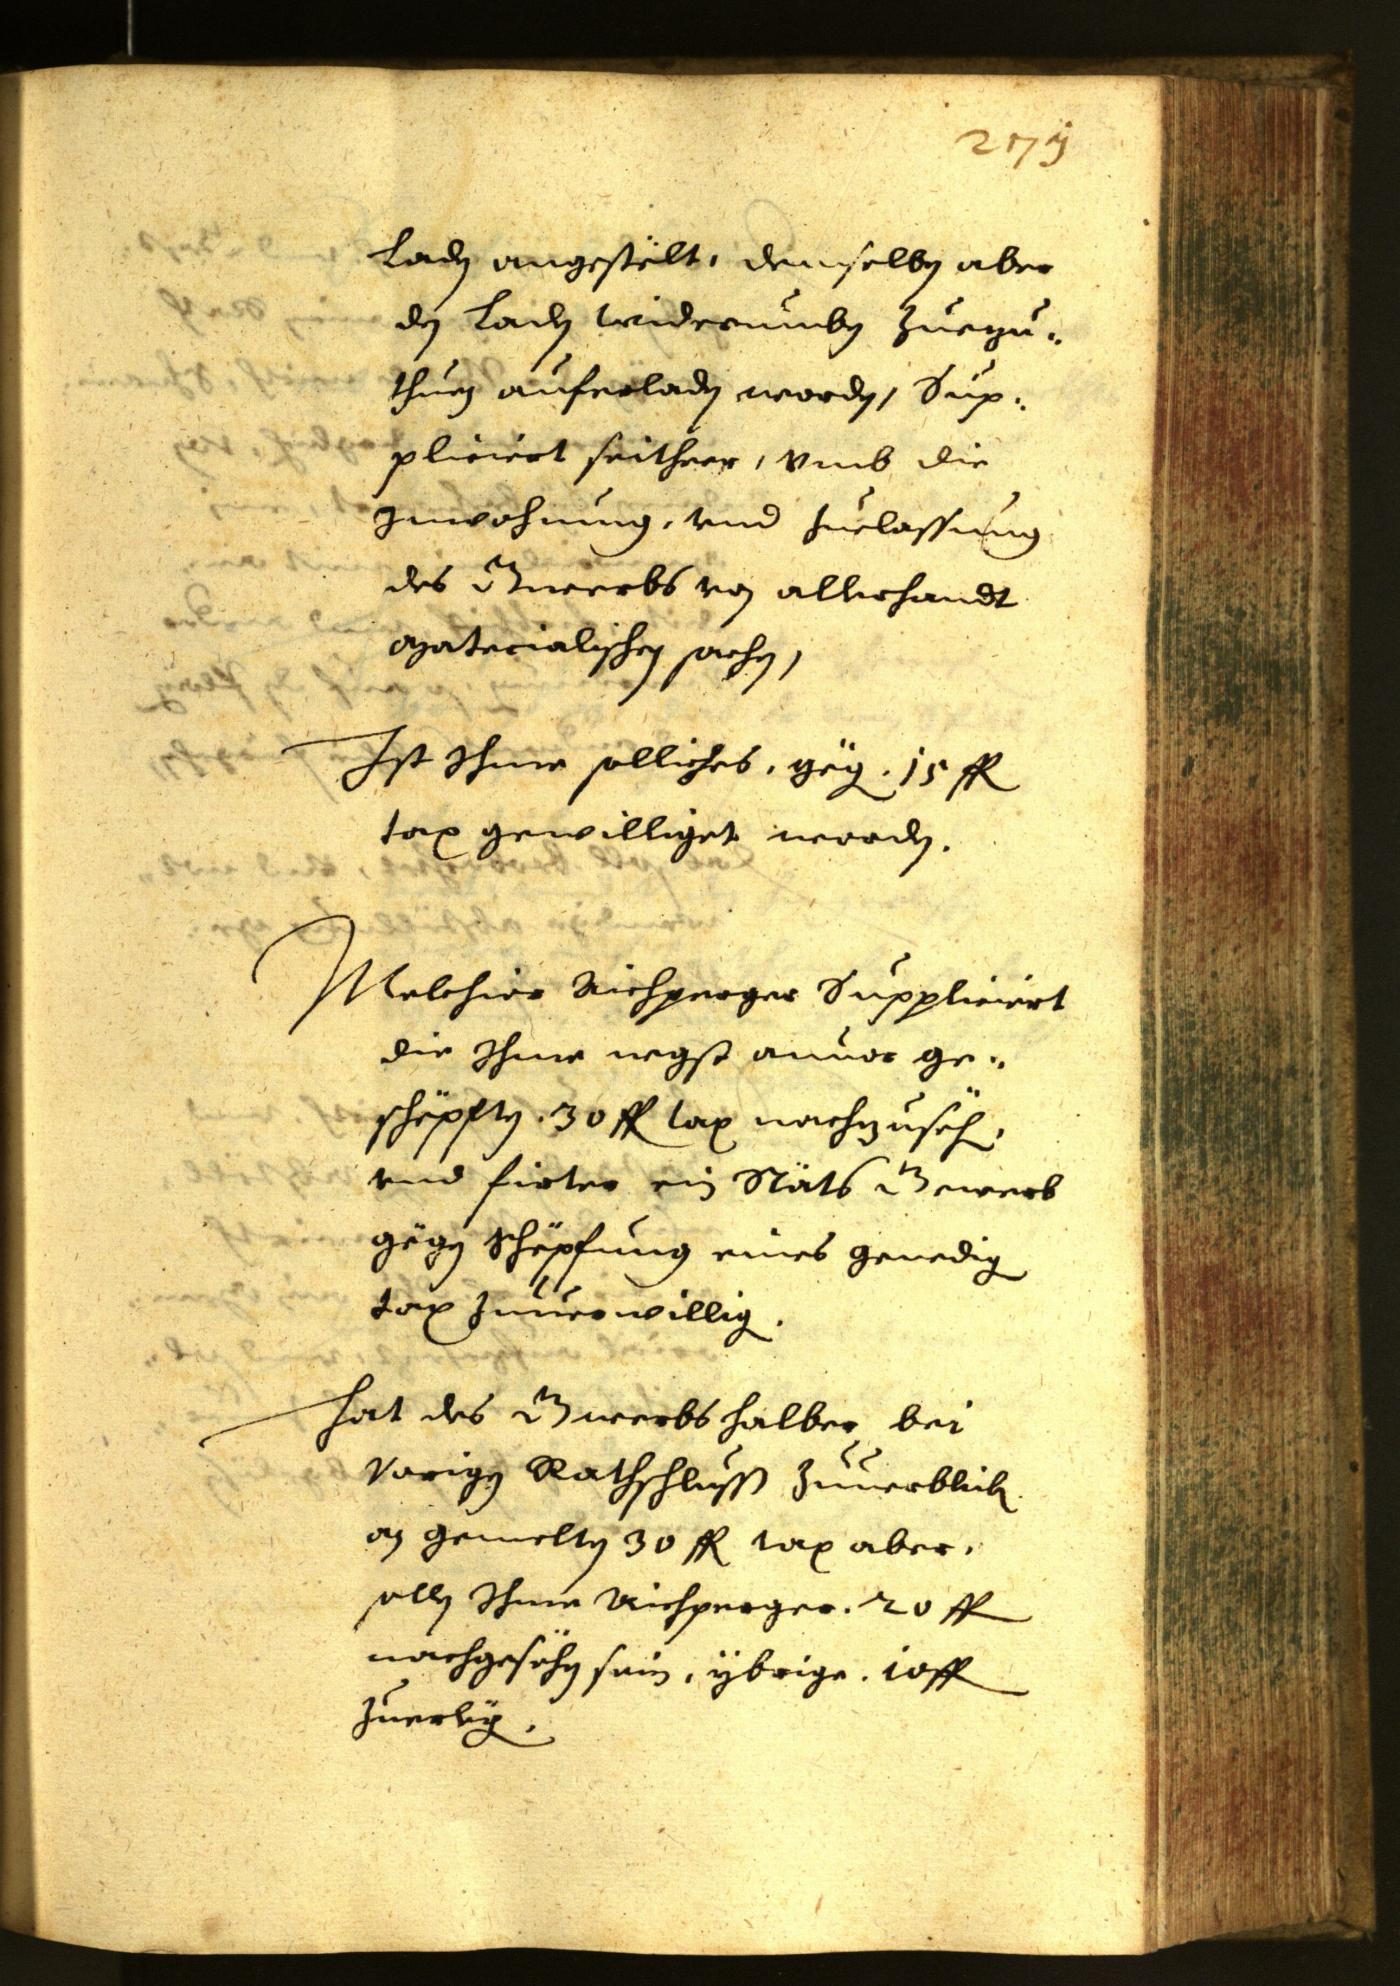 279
Laden angestëlt, demselben aber
den Laden widerumben Zuezu„
thuen auferladen worden, Sup„
pliciert seitheer, vmb die
Inwohnung, vnd zuelassung
des Gwerbs von allerhandt
Materialischen sachen,
Ist Ihme solliches, gëgen 15 fl
tax gewilliget worden.
Melchior Aichperger Suppliciert
die Ihme negst anuor ge„
schöpften 30 fl tax nachzusëhen,
vnd firter ein Stäts Gewerb
gëgen Schöpfung eines genedigen
tax zuuerwilligen.
Hat des Gwerbs halber bei
Vorigen Rathschluss Zuuerbleiben
an gemelten 30 fl tax aber,
sollen Ihme Aichperger 20 fl
nachgesëhen sein, ybrige 10 fl
Zuerlegen.